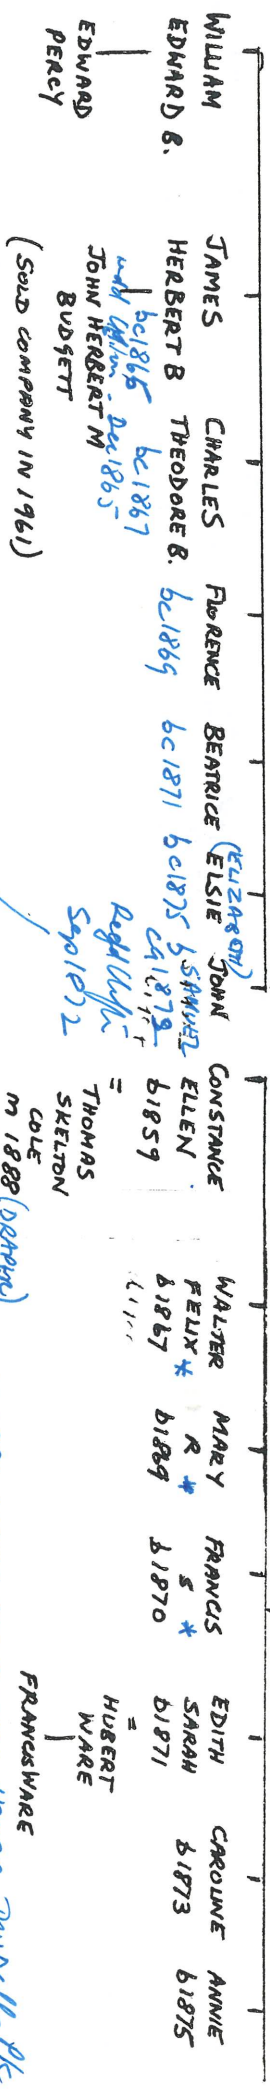 WILLIAM
EDWARD B.
EDWARD
PERCY
JAMES
HERBERT B
bc1866
JOHN HERBERT M
BUDGETT
(SOLD COMPANY IN 1961)
CHARLES
THEODORE B.
bc1867
Dec 1865
FLORENCE
bc1869
BEATRICE
bc1871
(ELIZABETH)
ELSIE
bc1875
JOHN
SAMUEL
b
Sep 1872
CONSTANCE
ELLEN
b1859
=
THOMAS
SKELTON
COLE
m 1888 (DRAPER)
WALTER
FELIX *
b1867
MARY
R *
b1869
FRANCIS
S *
b1870
EDITH
SARAH
b1871
=
HUBERT
WARE
FRANCIS WARE
CAROLINE
b1873
ANNIE
b1875